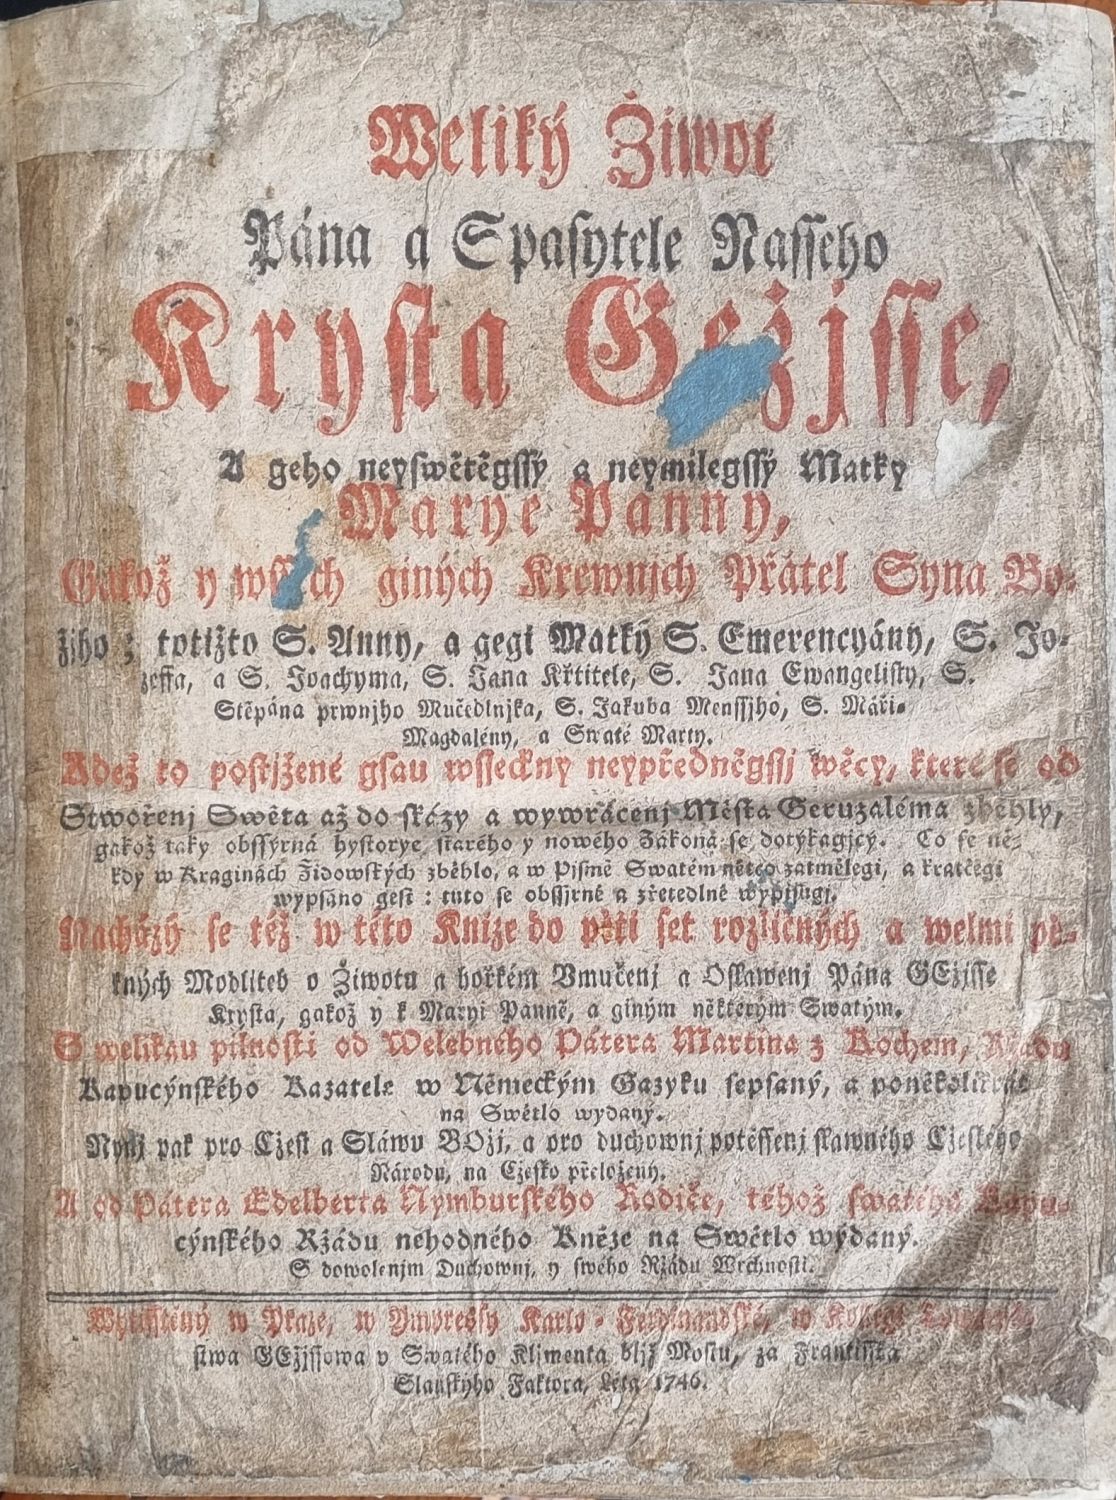 Weliký Žiwot
Pána a Spasytele Nasseho
Krysta Gežjsse,
A geho neyswětěgssý a neymilegssý Matky
Marye Panny,
Gakož y wssech giných Krewnjch Přátel Syna Bo-
žjho; totižto S. Anny, a gegi Matký S. Emerencyány, S. Jo-
zeffa, a S. Joachyma, S. Jana Křtitele, S. Jana Ewangelisty, S.
Stěpána prwnjho Mučedlnjka, S. Jakuba Menssjho, S. Máři-
Magdalény, a Swaté Marty.
Kdež to postjžené gsau wsseckny neypředněgssj wěcy, které se od
Stwořenj Swěta až do skázy a wywrácenj Města Geruzaléma zběhly,
gakož taky obssýrná hystorye starého y nowého Zákona se dotýkagjcý. Co se ně-
kdy w Kraginách Židowských zběhlo, a w Pjsmě Swatém něteo zatmělegi, a kratčegi
wypsáno gest: tuto se obssjrně a zřetedlně wypisugj.
Nacházý se též w této Knize do pěti set rozličných a welmi pě-
kných Modliteb o Žiwotu a hořkém Vmučenj a Oslawenj Pána GEžjsse
Krysta, gakož y k Maryi Panně, a giným některým Swatým.
S welikau pilnosti od Welebného Pátera Martina z Kochem, Ržádu
Kapucýnského Kazatele w Německým Gazyku sepsaný, a poněkolikrát
na Swětlo wydaný.
Nynj pak pro Cžest a Sláwu BOžj, a pro duchownj potěssenj slawného Cžeského
Národu, na Cžesko přeložený.
A od Pátera Edelberta Nymburského Rodiče, téhož swatého Kapu-
cýnského Ržádu nehodného Kněze na Swětlo wydaný.
S dowolenjm Duchownj, y swého Ržádu Wrchnosti.
Wytisstěný w Praze, w Ympressý Karlo-Ferdinandské, w Kollegi Towaryš-
stwa GEžjssowa v Swatého Klimenta bljž Mostu, za Frantisska
Slauského Faktora, Léta 1746.